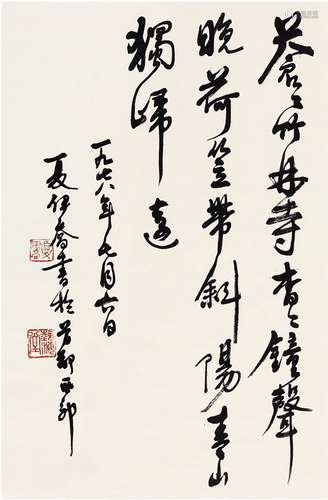 苍〻竹林寺杳〻鐘聲
晚荷笠帶斜陽青山
獨歸遠
一九七八年七月六日
夏伊喬書於首都西郊